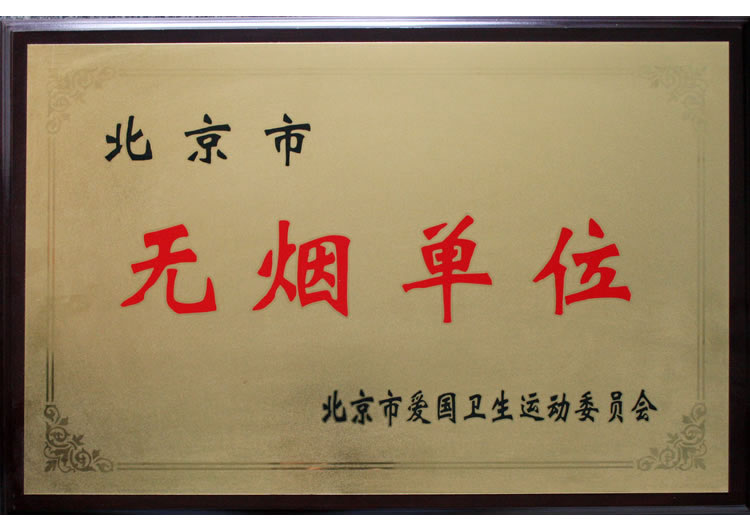 北京市
无烟单位
北京市爱国卫生运动委员会